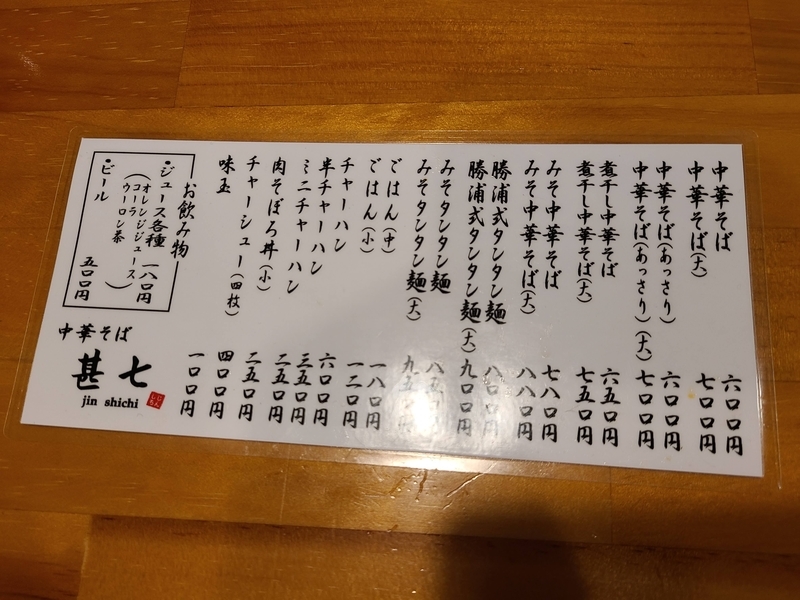 中華そば 六〇〇円
中華そば(大) 七〇〇円
中華そば(あっさり) 六〇〇円
中華そば(あっさり)(大) 七〇〇円
煮干し中華そば 六五〇円
煮干し中華そば(大) 七五〇円
みそ中華そば 七八〇円
みそ中華そば(大) 八八〇円
勝浦式タンタン麺 八〇〇円
勝浦式タンタン麺(大) 九〇〇円
みそタンタン麺 八五〇円
みそタンタン麺(大) 九五〇円
ごはん(中) 一八〇円
ごはん(小) 一二〇円
チャーハン 六〇〇円
半チャーハン 三五〇円
ミニチャーハン 二五〇円
肉そぼろ丼(小) 二五〇円
チャーシュー(四枚) 四〇〇円
味玉 一〇〇円
お飲み物
・ジュース各種 一八〇円
(オレンジジュース
コーラ
ウーロン茶)
・ビール 五〇〇円
中華そば
甚七
jin shichi
じんしち